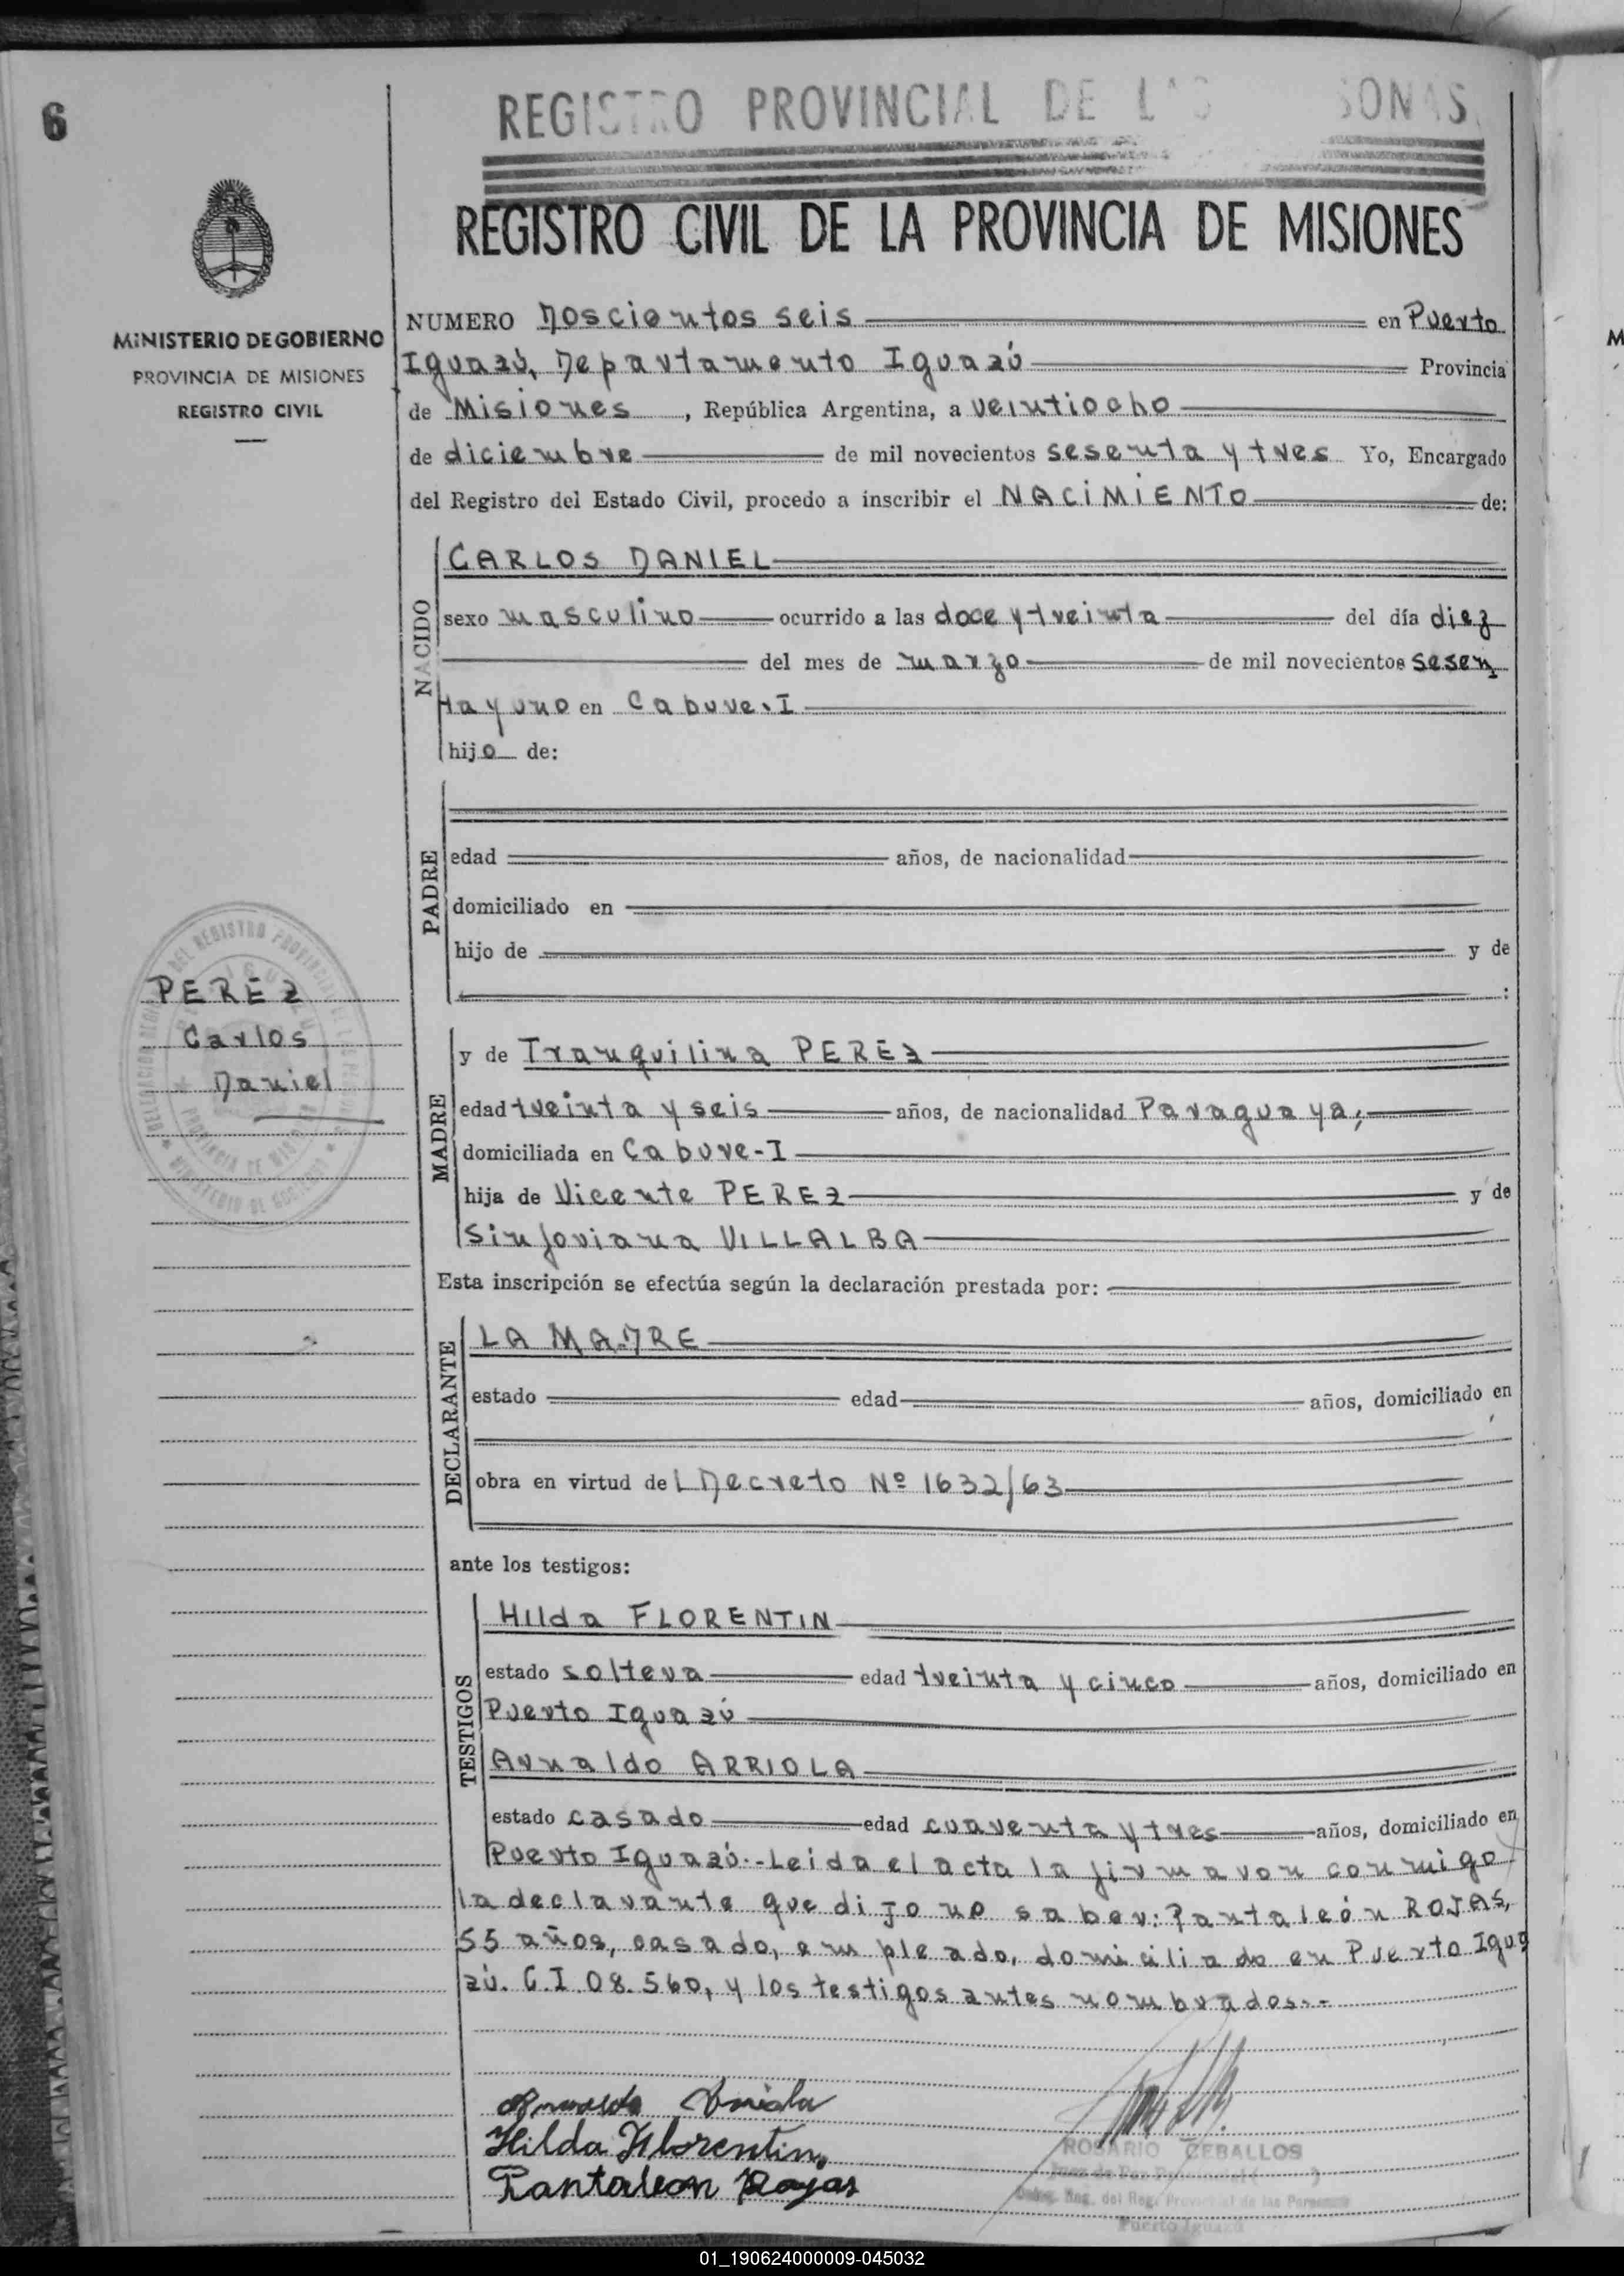 6
REGISTRO PROVINCIAL DE LAS PERSONAS
REGISTRO CIVIL DE LA PROVINCIA DE MISIONES
MINISTERIO DE GOBIERNO
PROVINCIA DE MISIONES
REGISTRO CIVIL
NUMERO Doscientos seis en Puerto
Iguazú, Departamento Iguazú Provincia
de Misiones, República Argentina, a veintiocho
de diciembre de mil novecientos sesenta y tres Yo, Encargado
del Registro del Estado Civil, procedo a inscribir el NACIMIENTO de:
NACIDO
CARLOS DANIEL
sexo masculino ocurrido a las doce y treinta del día diez
del mes de marzo de mil novecientos sesen
ta y uno en Cabure-I
hijo de:
PADRE
edad años, de nacionalidad
domiciliado en
hijo de y de
:
PEREZ
Carlos
Daniel
MADRE
y de Tranquilina PEREZ
edad treinta y seis años, de nacionalidad Paraguaya,
domiciliada en Cabure-I
hija de Vicente PEREZ y de
Sinforiana VILLALBA
Esta inscripción se efectúa según la declaración prestada por:
DECLARANTE
LA MADRE
estado edad años, domiciliado en
obra en virtud del Decreto Nº 1632/63
ante los testigos:
TESTIGOS
Hilda FLORENTIN
estado soltera edad treinta y cinco años, domiciliado en
Puerto Iguazú
Arnaldo ARRIOLA
estado casado edad cuarenta y tres años, domiciliado en
Puerto Iguazú.-Leida el acta la firmaron conmigo
la declarante que dijo no saber: Pantaleón ROJAS,
55 años, casado, empleado, domiciliado en Puerto Igua
zú. C.I 08.560, y los testigos antes nombrados.-
Arnaldo Arriola
Hilda Florentin
Pantaleon Rojas
ROSARIO CEBALLOS
Juez de Paz
Enc. Reg. del Reg. Provincial de las Personas
Puerto Iguazú
01_190624000009-045032